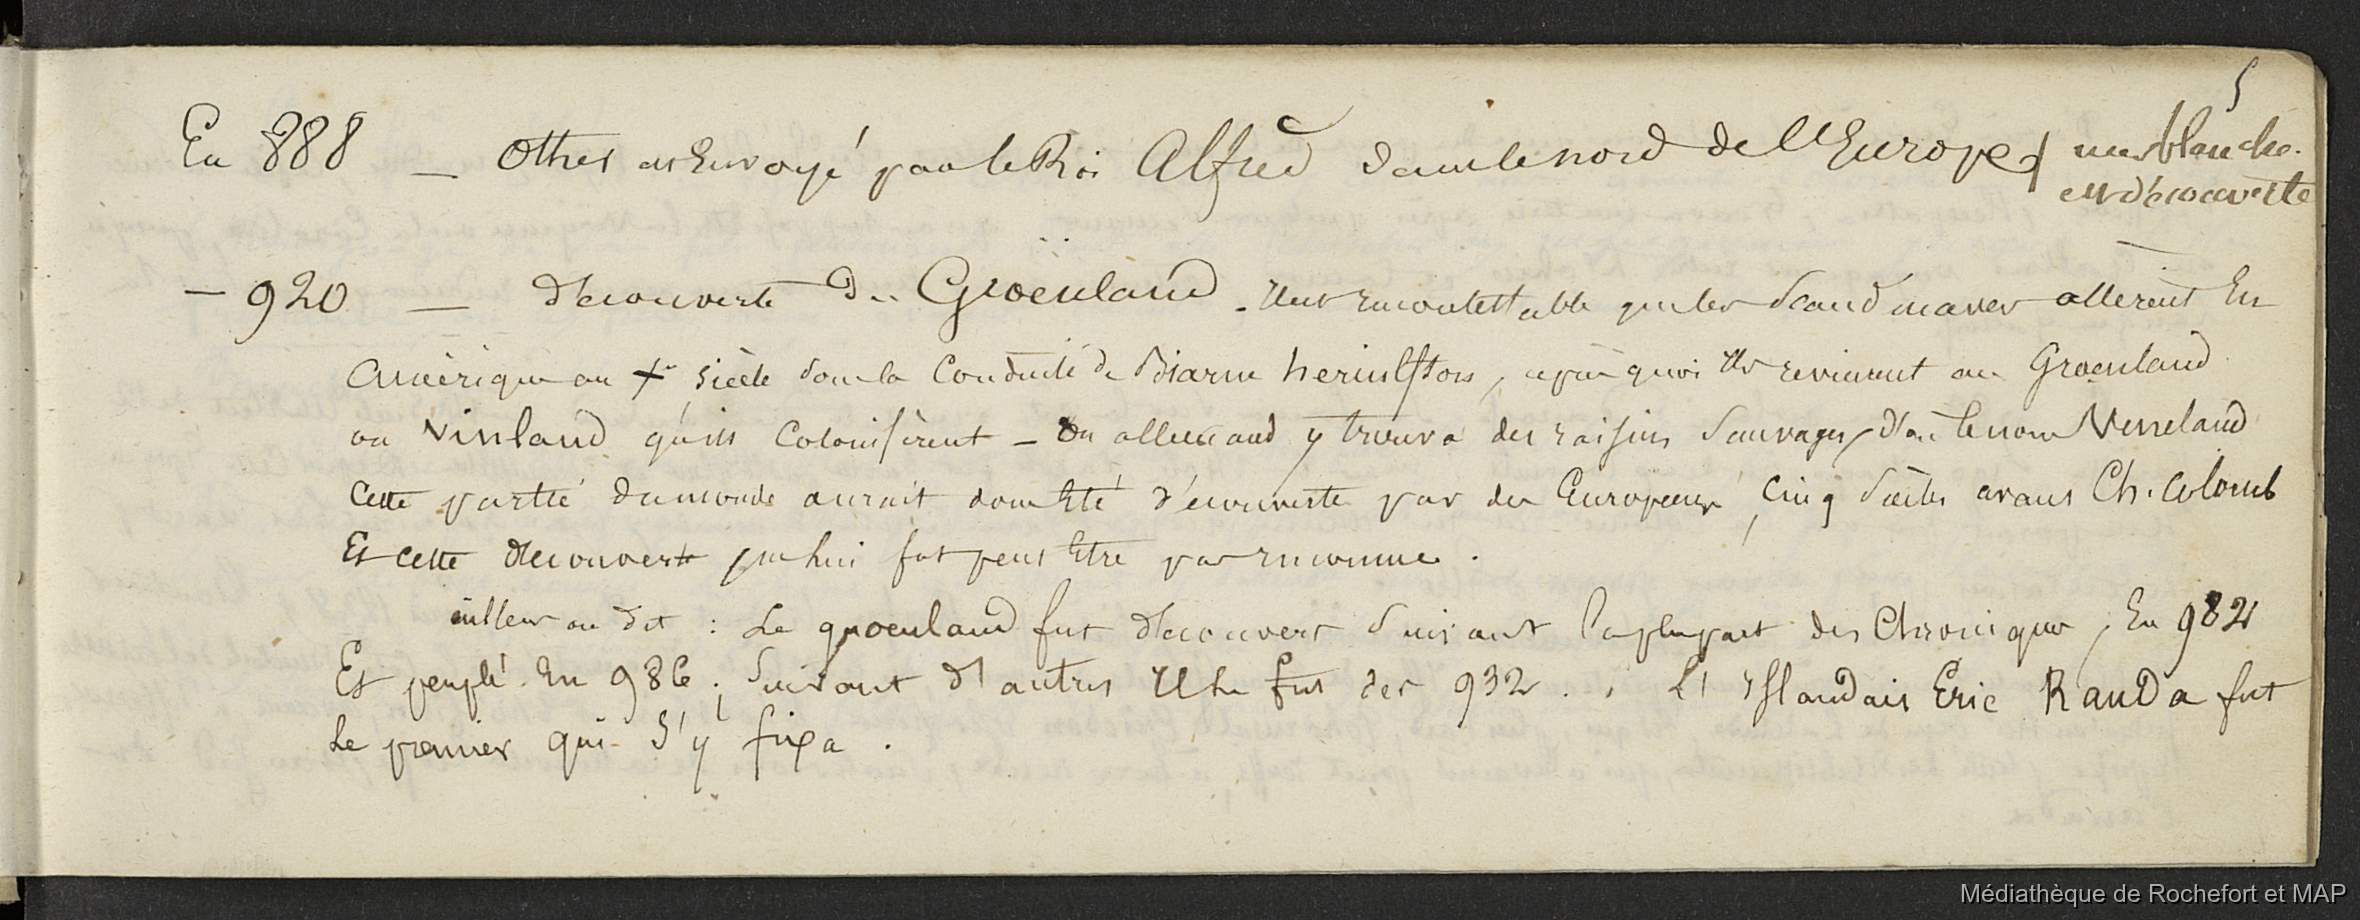 5
En 888 — Other est Envoyé par le Roi Alfred dans le nord de l'Europe mer blanche
est découverte
— 920 — découverte du Groenland. Il est incontestable que les Scandinaves allèrent En
Amérique au Xe siècle sous la Conduite de Biarne heriulfson, après quoi ils revinrent au Groenland
ou Vinland qu'ils Colonisèrent — Un allemand y trouva des raisins Sauvages, d'où le nom Veneland
Cette partie du monde aurait donc Eté découverte par des Européens, Cinq Siècles avant Ch. Colomb
Et cette découverte ne lui fut peut Etre pas inconnue.
ailleurs on dit : Le groenland fut découvert Suivant la plupart des Chroniques, En 982
Et peuplé En 986 ; Suivant d'autres Il le fut dès 932 . . L'islandais Eric Rauda fut
Le premier qui S'y fixa .
Médiathèque de Rochefort et MAP